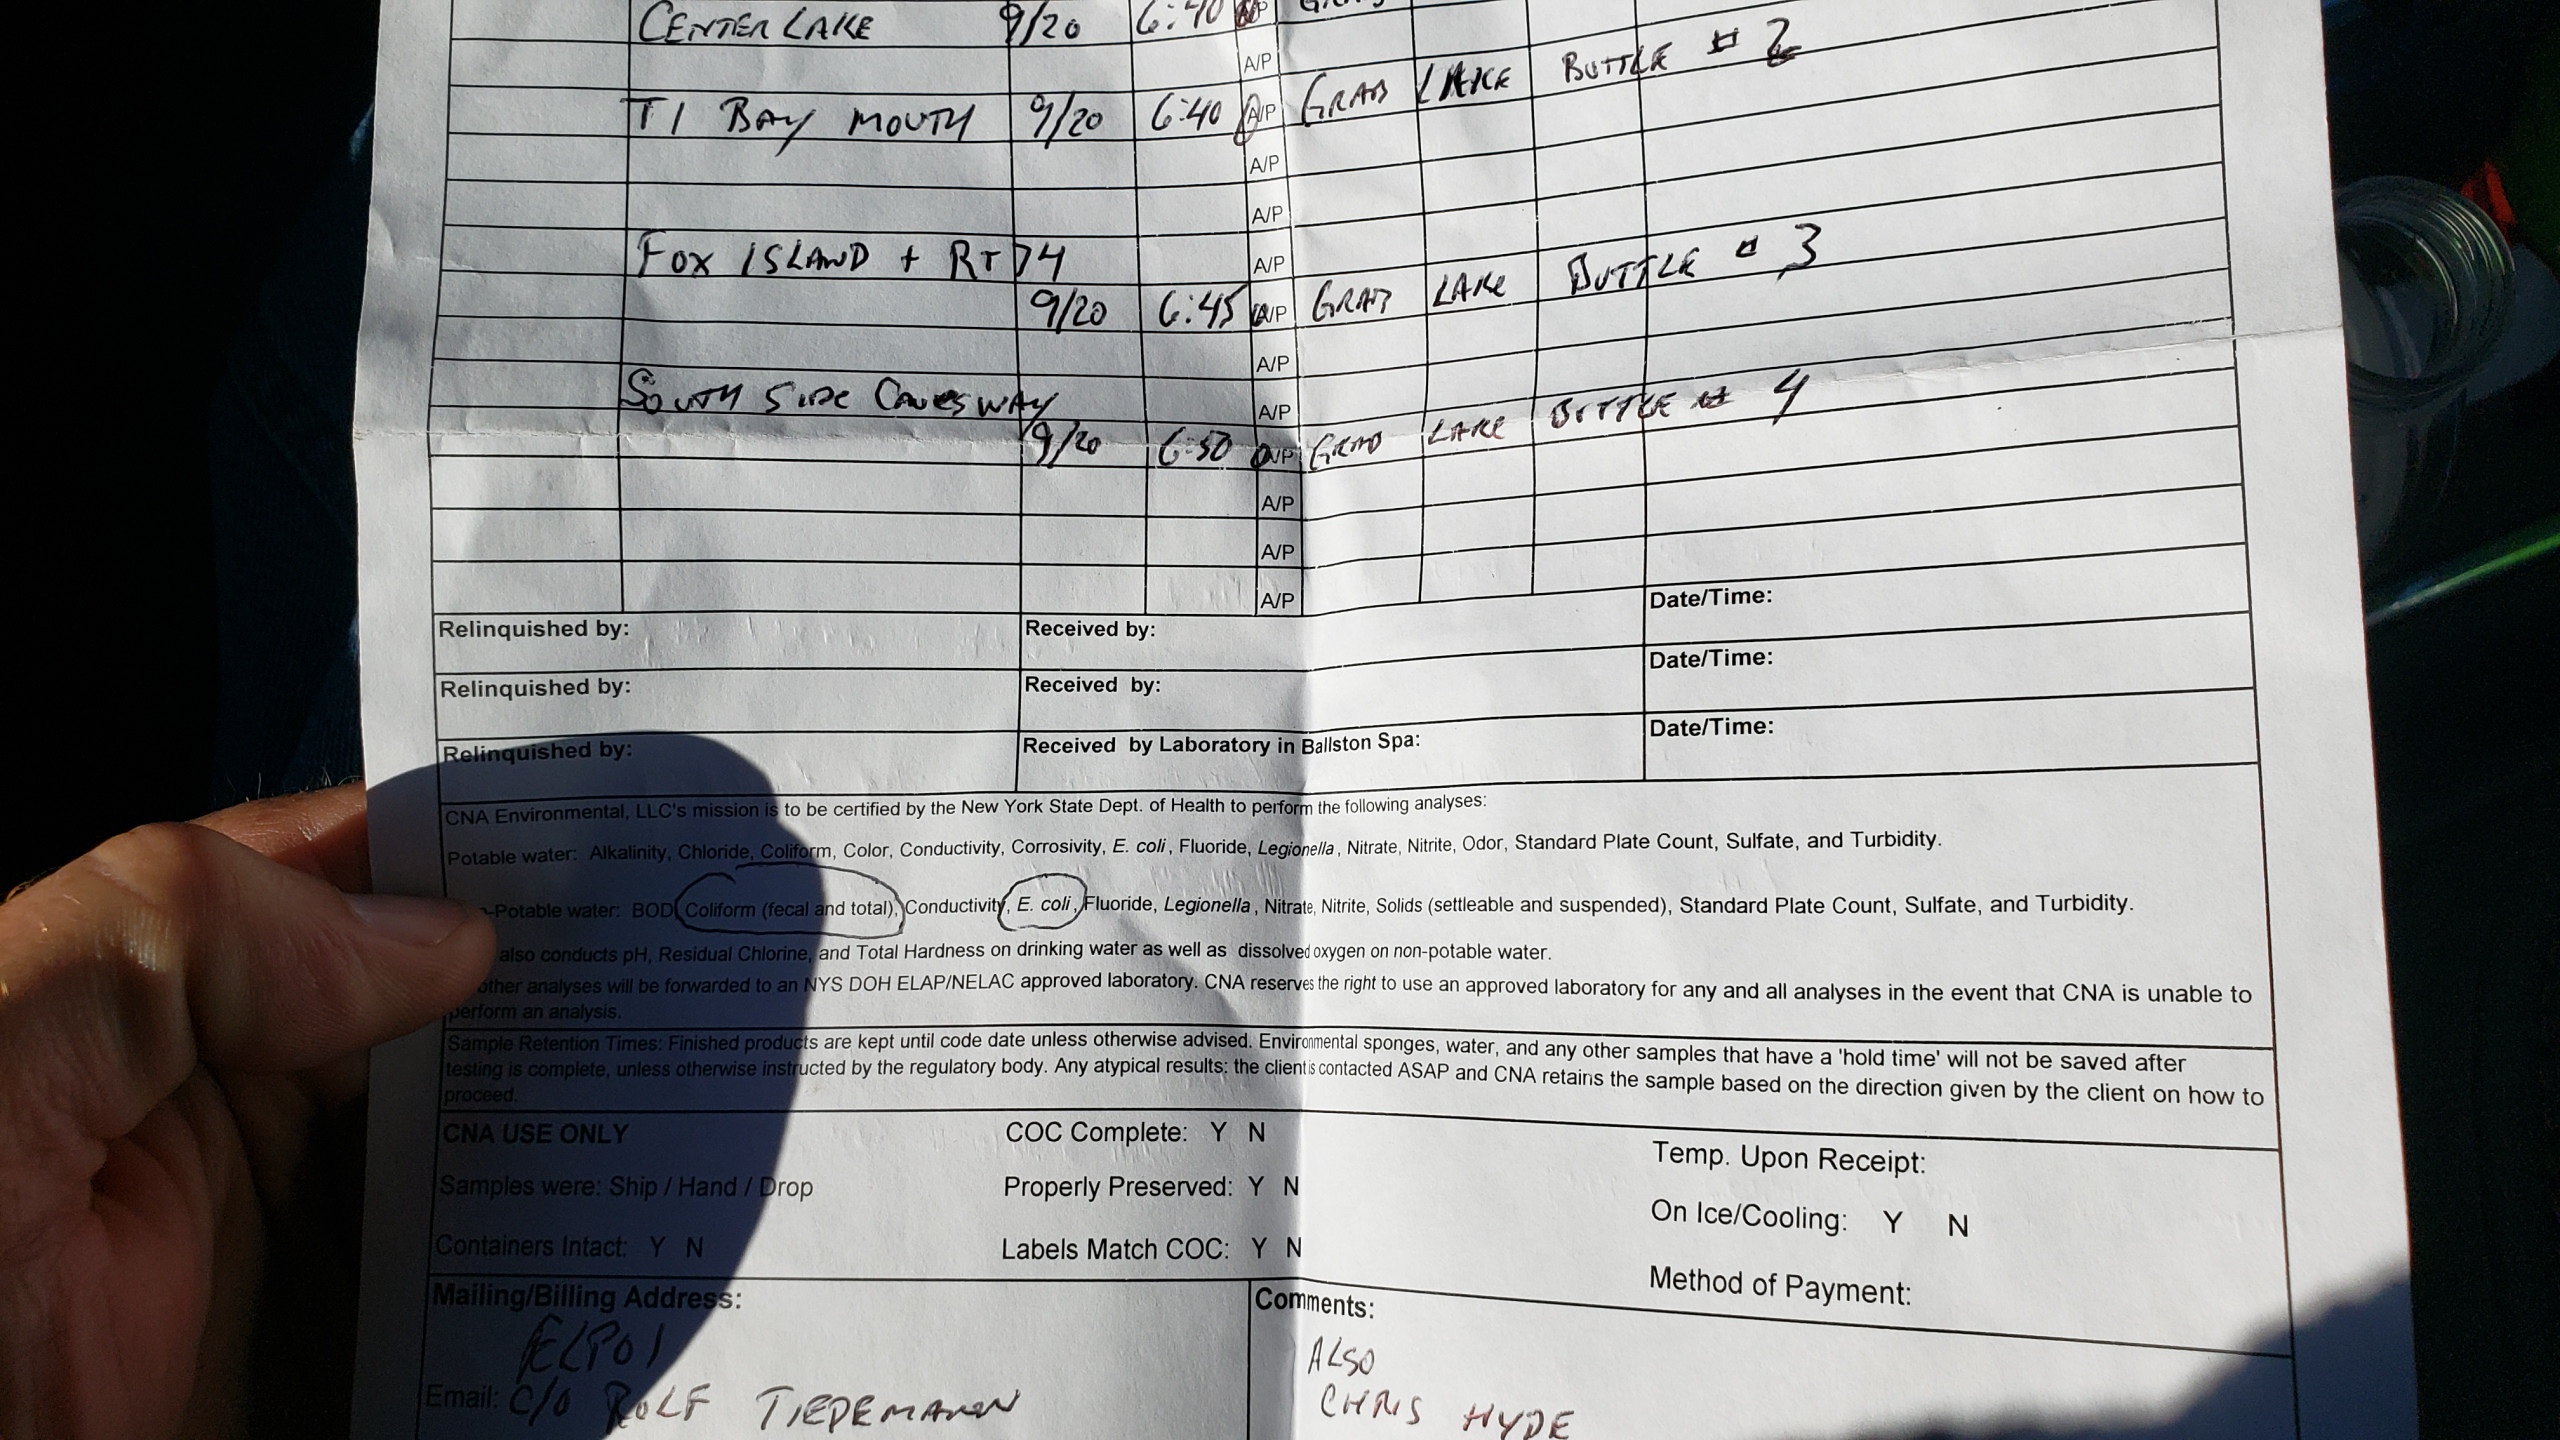 CENTER LAKE 9/20 6:40 A/P
A/P
TI BAY MOUTH 9/20 6:40 A/P GRAB LAKE BOTTLE # 2
A/P
A/P
FOX ISLAND + RT 74 A/P
9/20 6:45 A/P GRAB LAKE BOTTLE # 3
A/P
SOUTH SIDE CAUESWAY A/P
9/20 6:50 A/P GRAB LAKE BOTTLE # 4
A/P
A/P
A/P
Relinquished by: Received by: Date/Time:
Relinquished by: Received by: Date/Time:
Relinquished by: Received by Laboratory in Ballston Spa: Date/Time:
CNA Environmental, LLC's mission is to be certified by the New York State Dept. of Health to perform the following analyses:
Potable water: Alkalinity, Chloride, Coliform, Color, Conductivity, Corrosivity, E. coli, Fluoride, Legionella, Nitrate, Nitrite, Odor, Standard Plate Count, Sulfate, and Turbidity.
-Potable water: BOD, Coliform (fecal and total), Conductivity, E. coli, Fluoride, Legionella, Nitrate, Nitrite, Solids (settleable and suspended), Standard Plate Count, Sulfate, and Turbidity.
also conducts pH, Residual Chlorine, and Total Hardness on drinking water as well as dissolved oxygen on non-potable water.
other analyses will be forwarded to an NYS DOH ELAP/NELAC approved laboratory. CNA reserves the right to use an approved laboratory for any and all analyses in the event that CNA is unable to
perform an analysis.
Sample Retention Times: Finished products are kept until code date unless otherwise advised. Environmental sponges, water, and any other samples that have a 'hold time' will not be saved after
testing is complete, unless otherwise instructed by the regulatory body. Any atypical results: the client is contacted ASAP and CNA retains the sample based on the direction given by the client on how to
proceed.
CNA USE ONLY COC Complete: Y N Temp. Upon Receipt:
Samples were: Ship / Hand / Drop Properly Preserved: Y N On Ice/Cooling: Y N
Containers Intact: Y N Labels Match COC: Y N Method of Payment:
Mailing/Billing Address: Comments:
ELPOI ALSO
Email: C/O ROLF TIEDEMANN CHRIS HYDE